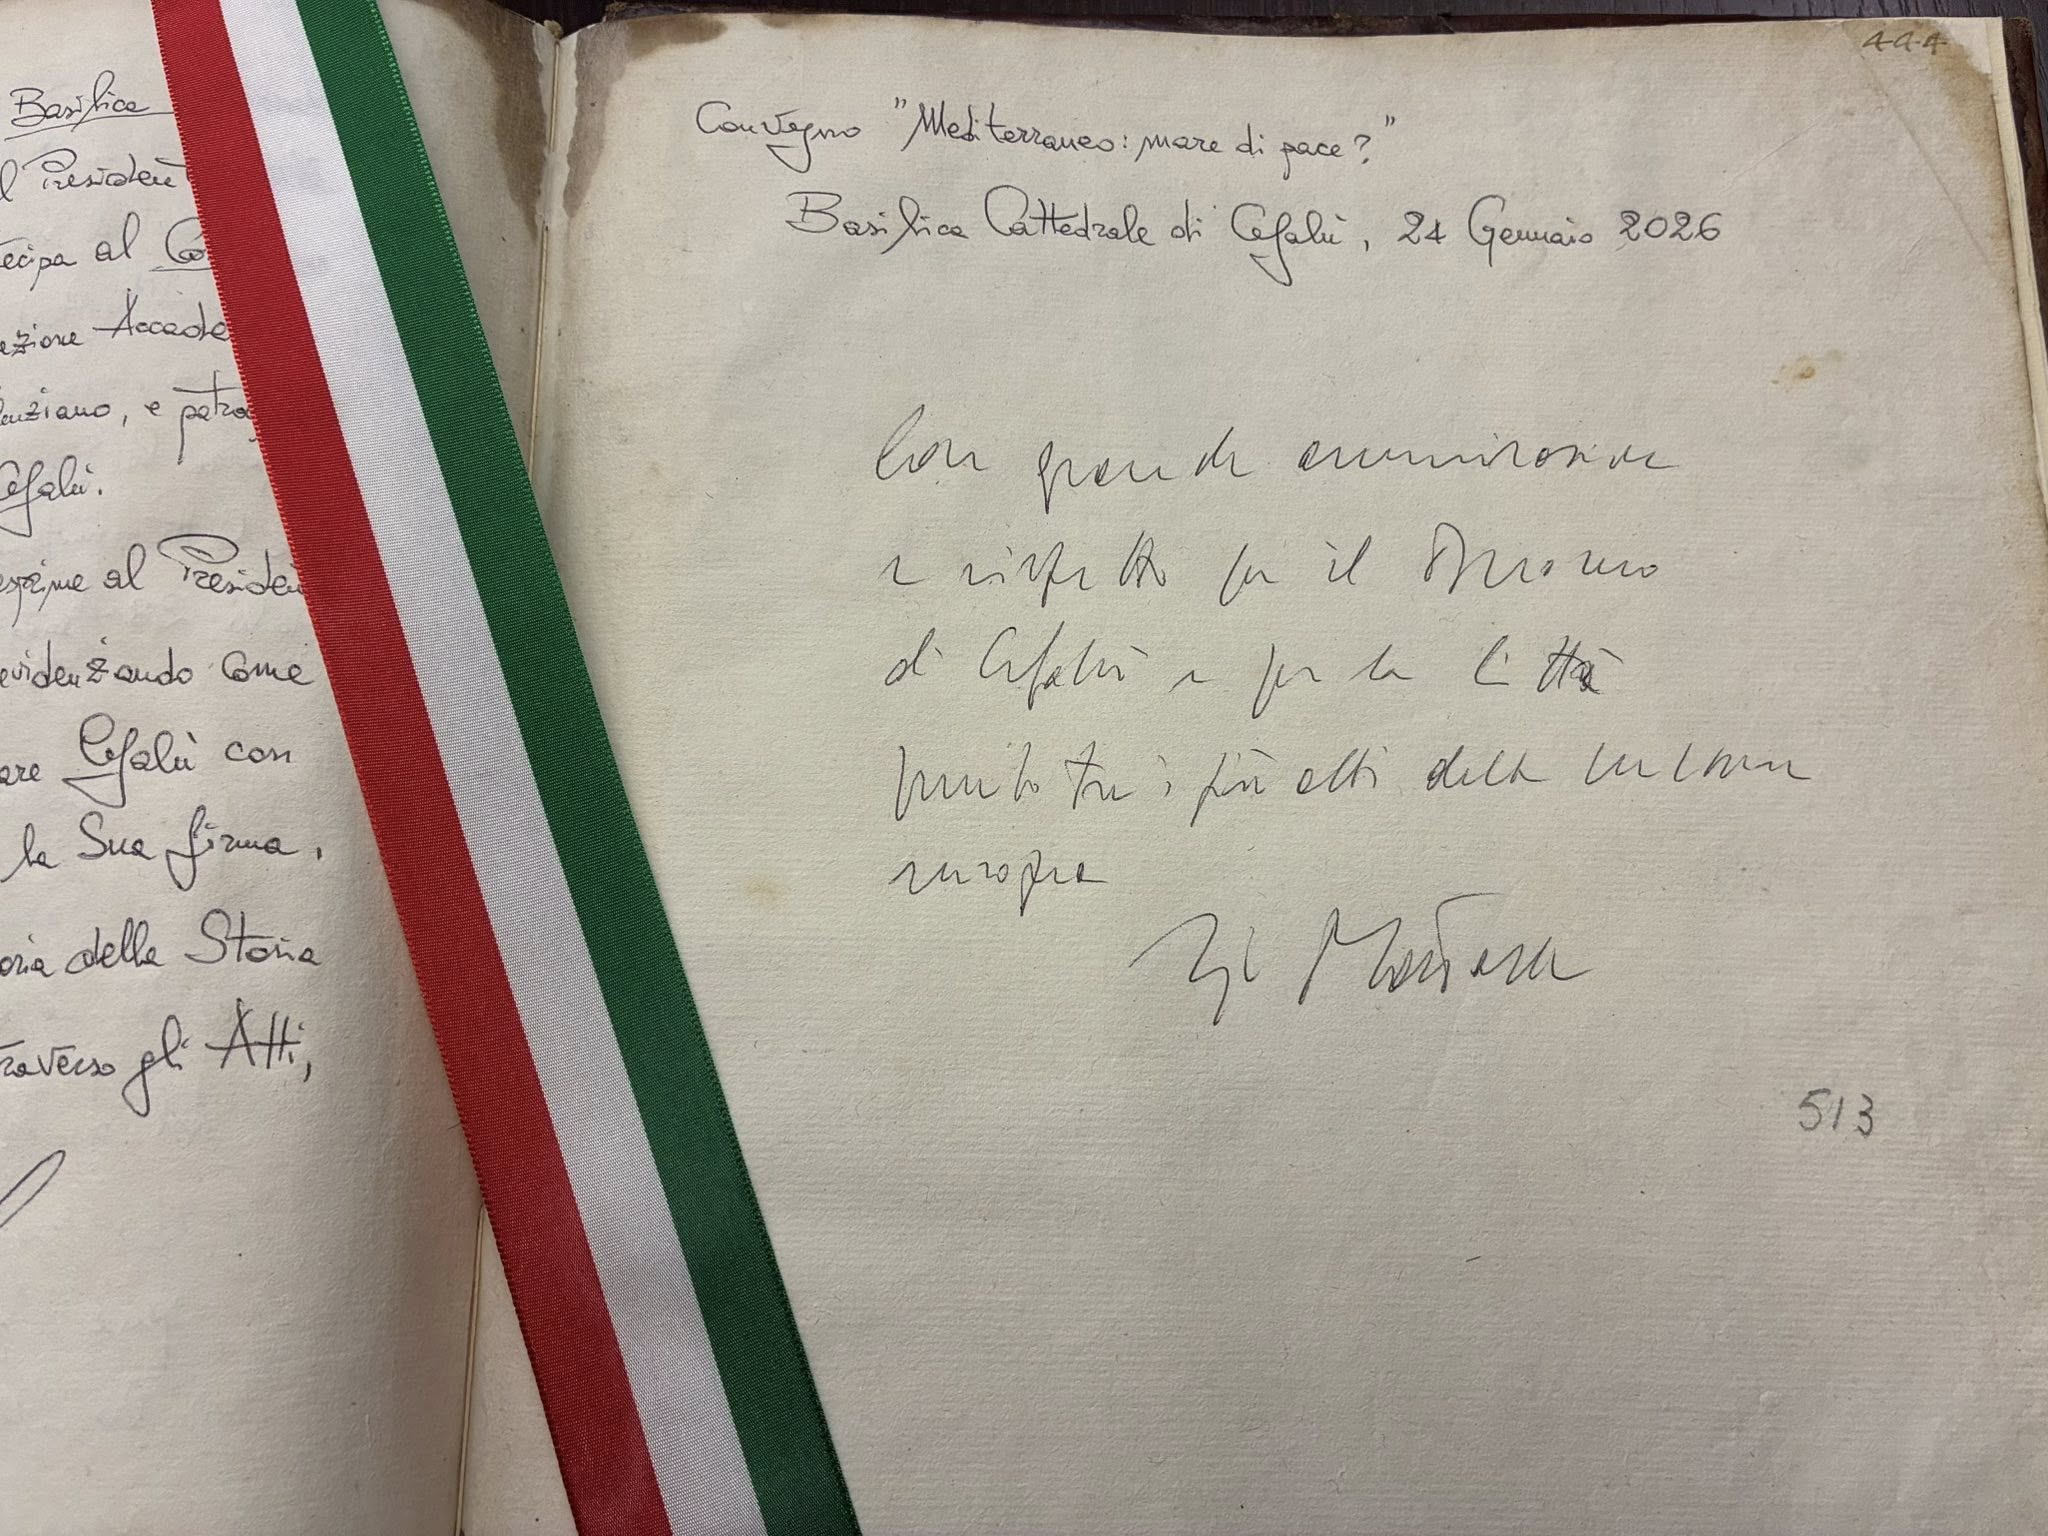 Basilica
President
al Co
Accade
, e patro
Cefalù.
al Presiden
evidenziando come
Cefalù con
la Sua firma,
della Storia
gli Atti,
Convegno "Mediterraneo: mare di pace?"
Basilica Cattedrale di Cefalù, 24 Gennaio 2026
Con grande ammirazione
e rispetto per il Duomo
di Cefalù e per la Città
punto tra i più alti della cultura
europea
513